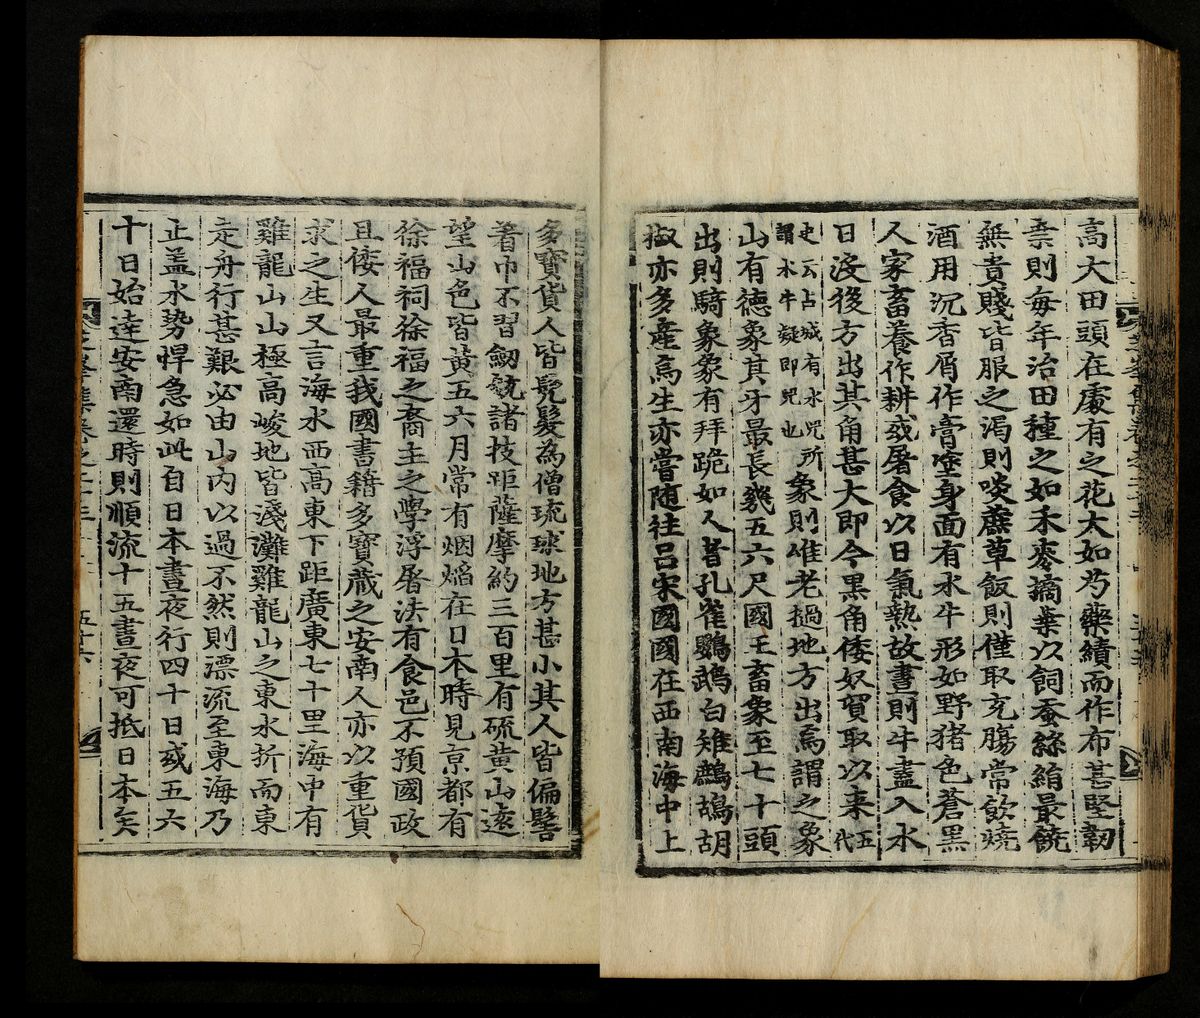 高大田頭在處有之花大如芍藥績而作布甚堅韌
桑則每年治田種之如禾麥摘葉以飼蚕絲絹最饒
無貴賤皆服之渴則啖蔗草飯則僅取充膓常飮燒
酒用沉香屑作膏塗身面有水牛形如野猪色蒼黑
人家畜養作耕或屠食以日氣熱故晝則牛盡入水
日沒後方出其角甚大即今黑角倭奴貿取以來五代
史云占城有水兕所謂水牛疑即兕也象則唯老撾地方出焉謂之象
山有德象其牙最長幾五六尺國王畜象至七十頭
出則騎象象有拜跪如人者孔雀鸚鵡白雉鷓鴣胡
椒亦多產焉生亦嘗随往呂宋國國在西南海中上
多寶貨人皆髠髮為僧琉球地方甚小其人皆偏髻
着巾不習劒銃諸技距薩摩約三百里有硫黄山遠
望山色皆黄五六月常有烟焰在日本時見京都有
徐福祠徐福之裔主之學浮屠法有食邑不預國政
且倭人最重我國書籍多寶藏之安南人亦以重貨
求之生又言海水西高東下距廣東七十里海中有
雞龍山山極高峻地皆淺灘雞龍山之東水折而東
走舟行甚艱必由山内以過不然則漂流至東海乃
止盖水勢悍急如此自日本晝夜行四十日或五六
十日始達安南還時則順流十五晝夜可抵日本矣
集卷之二十三 五十六